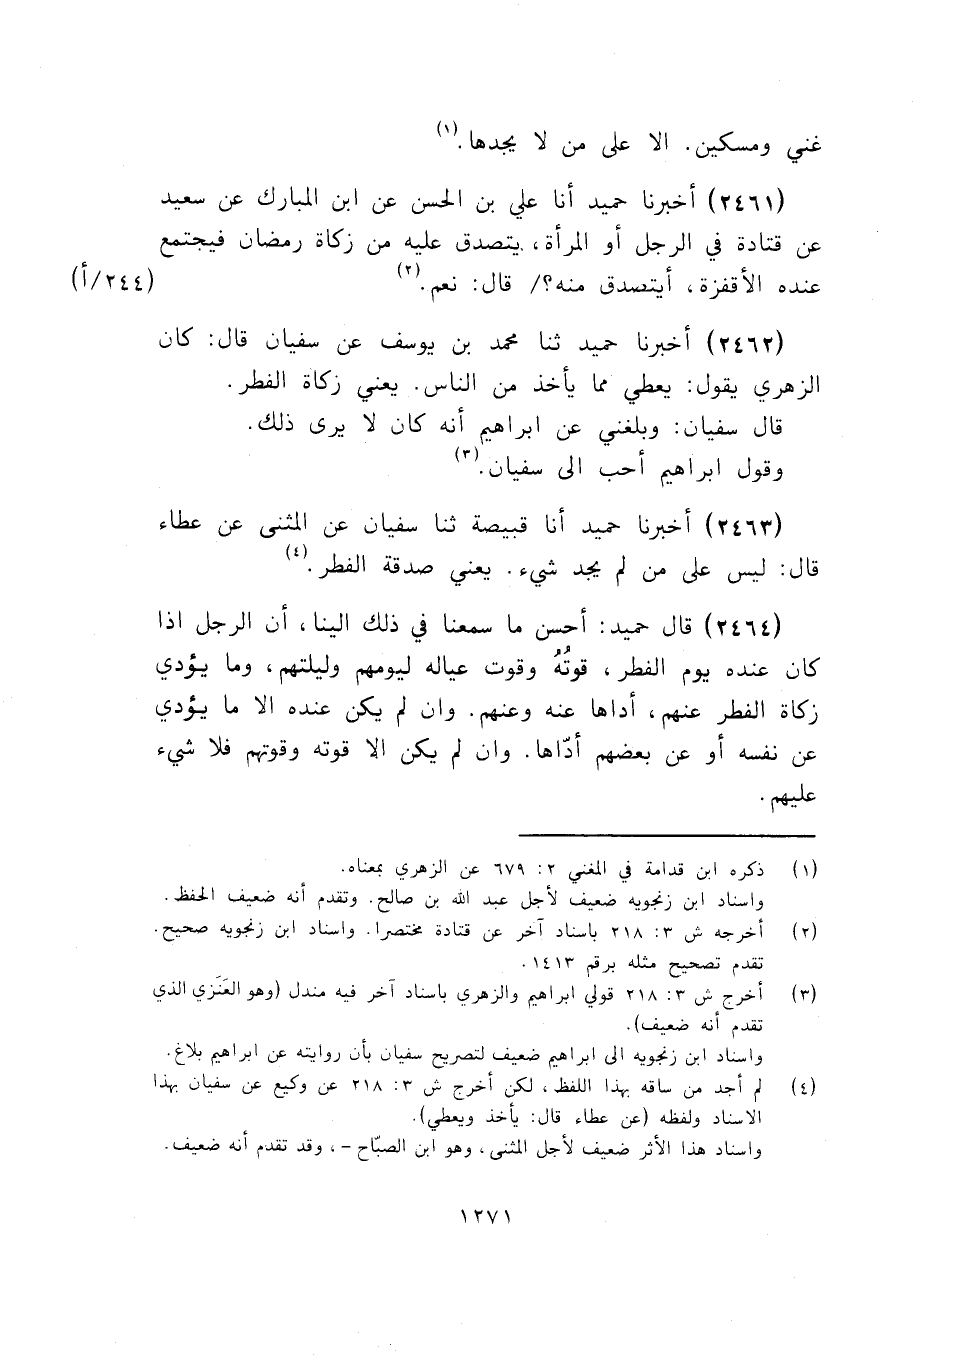 غني ومسكين. الا على من لا يجدها.(١)
(٢٤٦١) أخبرنا حميد أنا علي بن الحسن عن ابن المبارك عن سعيد
عن قتادة في الرجل أو المرأة، يتصدق عليه من زكاة رمضان فيجتمع
عنده الأقفزة، أيتصدق منه؟/ قال: نعم.(٢) (٢٤٤/أ)
(٢٤٦٢) أخبرنا حميد ثنا محمد بن يوسف عن سفيان قال: كان
الزهري يقول: يعطي مما يأخذ من الناس. يعني زكاة الفطر.
قال سفيان: وبلغني عن ابراهيم أنه كان لا يرى ذلك.
وقول ابراهيم أحب الى سفيان.(٣)
(٢٤٦٣) أخبرنا حميد أنا قبيصة ثنا سفيان عن المثنى عن عطاء
قال: ليس على من لم يجد شيء. يعني صدقة الفطر.(٤)
(٢٤٦٤) قال حميد: أحسن ما سمعنا في ذلك الينا، أن الرجل اذا
كان عنده يوم الفطر، قوتُهُ وقوت عياله ليومهم وليلتهم، وما يؤدي
زكاة الفطر عنهم، أداها عنه وعنهم. وان لم يكن عنده الا ما يؤدي
عن نفسه أو عن بعضهم أدّاها. وان لم يكن الا قوته وقوتهم فلا شيء
عليهم.
(١) ذكره ابن قدامة في المغني ٢: ٦٧٩ عن الزهري بمعناه.
واسناد ابن زنجويه ضعيف لأجل عبد الله بن صالح. وتقدم أنه ضعيف الحفظ.
(٢) أخرجه ش ٣: ٢١٨ باسناد آخر عن قتادة مختصرا. واسناد ابن زنجويه صحيح.
تقدم تصحيح مثله برقم ١٤١٣.
(٣) أخرج ش ٣: ٢١٨ قولي ابراهيم والزهري باسناد آخر فيه مندل (وهو العَنَزي الذي
تقدم أنه ضعيف).
واسناد ابن زنجويه الى ابراهيم ضعيف لتصريح سفيان بأن روايته عن ابراهيم بلاغ.
(٤) لم أجد من ساقه بهذا اللفظ، لكن أخرج ش ٣: ٢١٨ عن وكيع عن سفيان بهذا
الاسناد ولفظه (عن عطاء قال: يأخذ ويعطي).
واسناد هذا الأثر ضعيف لأجل المثنى، وهو ابن الصبّاح -، وقد تقدم أنه ضعيف.
١٢٧١